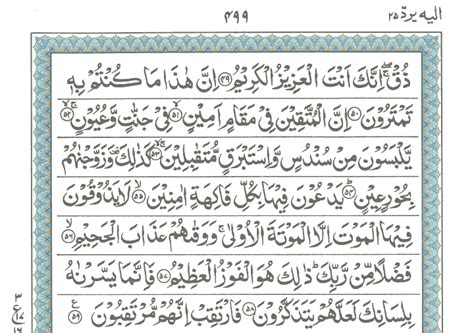 اليه يرد ۲۵ ۴۹۹
ذُقْ ۚ اِنَّكَ اَنْتَ الْعَزِيْزُ الْكَرِيْمُ ﴿۴۹﴾ اِنَّ هٰذَا مَا كُنْتُمْ بِهٖ
تَمْتَرُوْنَ ﴿۵۰﴾ اِنَّ الْمُتَّقِيْنَ فِيْ مَقَامٍ اَمِيْنٍ ﴿۵۱﴾ فِيْ جَنّٰتٍ وَّعُيُوْنٍ ﴿۵۲﴾
يَّلْبَسُوْنَ مِنْ سُنْدُسٍ وَّاِسْتَبْرَقٍ مُّتَقٰبِلِيْنَ ﴿۵۳﴾ كَذٰلِكَ وَزَوَّجْنٰهُمْ
بِحُوْرٍ عِيْنٍ ﴿۵۴﴾ يَدْعُوْنَ فِيْهَا بِكُلِّ فَاكِهَةٍ اٰمِنِيْنَ ﴿۵۵﴾ لَا يَذُوْقُوْنَ
فِيْهَا الْمَوْتَ اِلَّا الْمَوْتَةَ الْاُوْلٰى ۚ وَوَقٰىهُمْ عَذَابَ الْجَحِيْمِ ﴿۵۶﴾
فَضْلًا مِّنْ رَّبِّكَ ؕ ذٰلِكَ هُوَ الْفَوْزُ الْعَظِيْمُ ﴿۵۷﴾ فَاِنَّمَا يَسَّرْنٰهُ
بِلِسَانِكَ لَعَلَّهُمْ يَتَذَكَّرُوْنَ ﴿۵۸﴾ فَارْتَقِبْ اِنَّهُمْ مُّرْتَقِبُوْنَ ﴿۵۹﴾